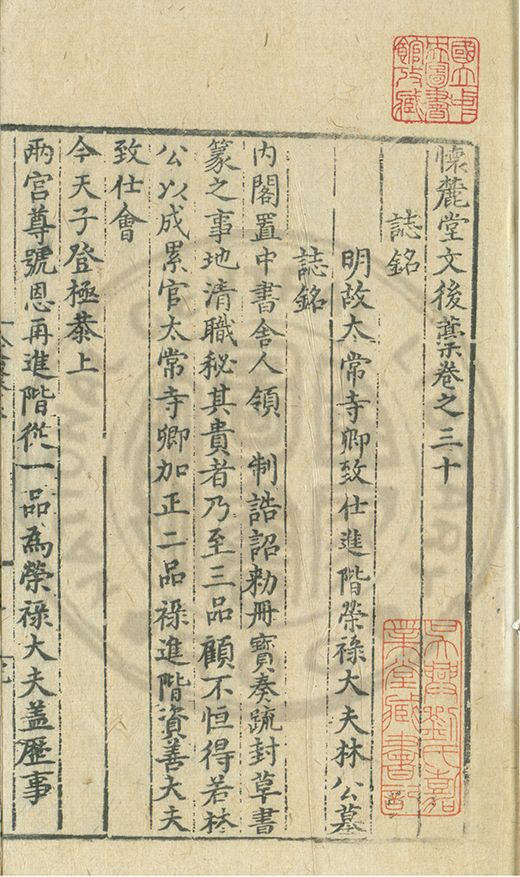 懷麓堂文後藁卷之三十
誌銘
明故太常寺卿致仕進階榮祿大夫林公墓
誌銘
內閣置中書舍人領 制誥詔勑冊寶奏䟽封草書
篆之事地清職秘其貴者乃至三品顧不恒得若林
公以成累官太常寺卿加正二品祿進階資善大夫
致仕會
今天子登極恭上
兩宮尊號恩再進階從一品為榮祿大夫盖歷事
國立中
央圖書
館收藏
吳興劉氏嘉
業堂藏書記